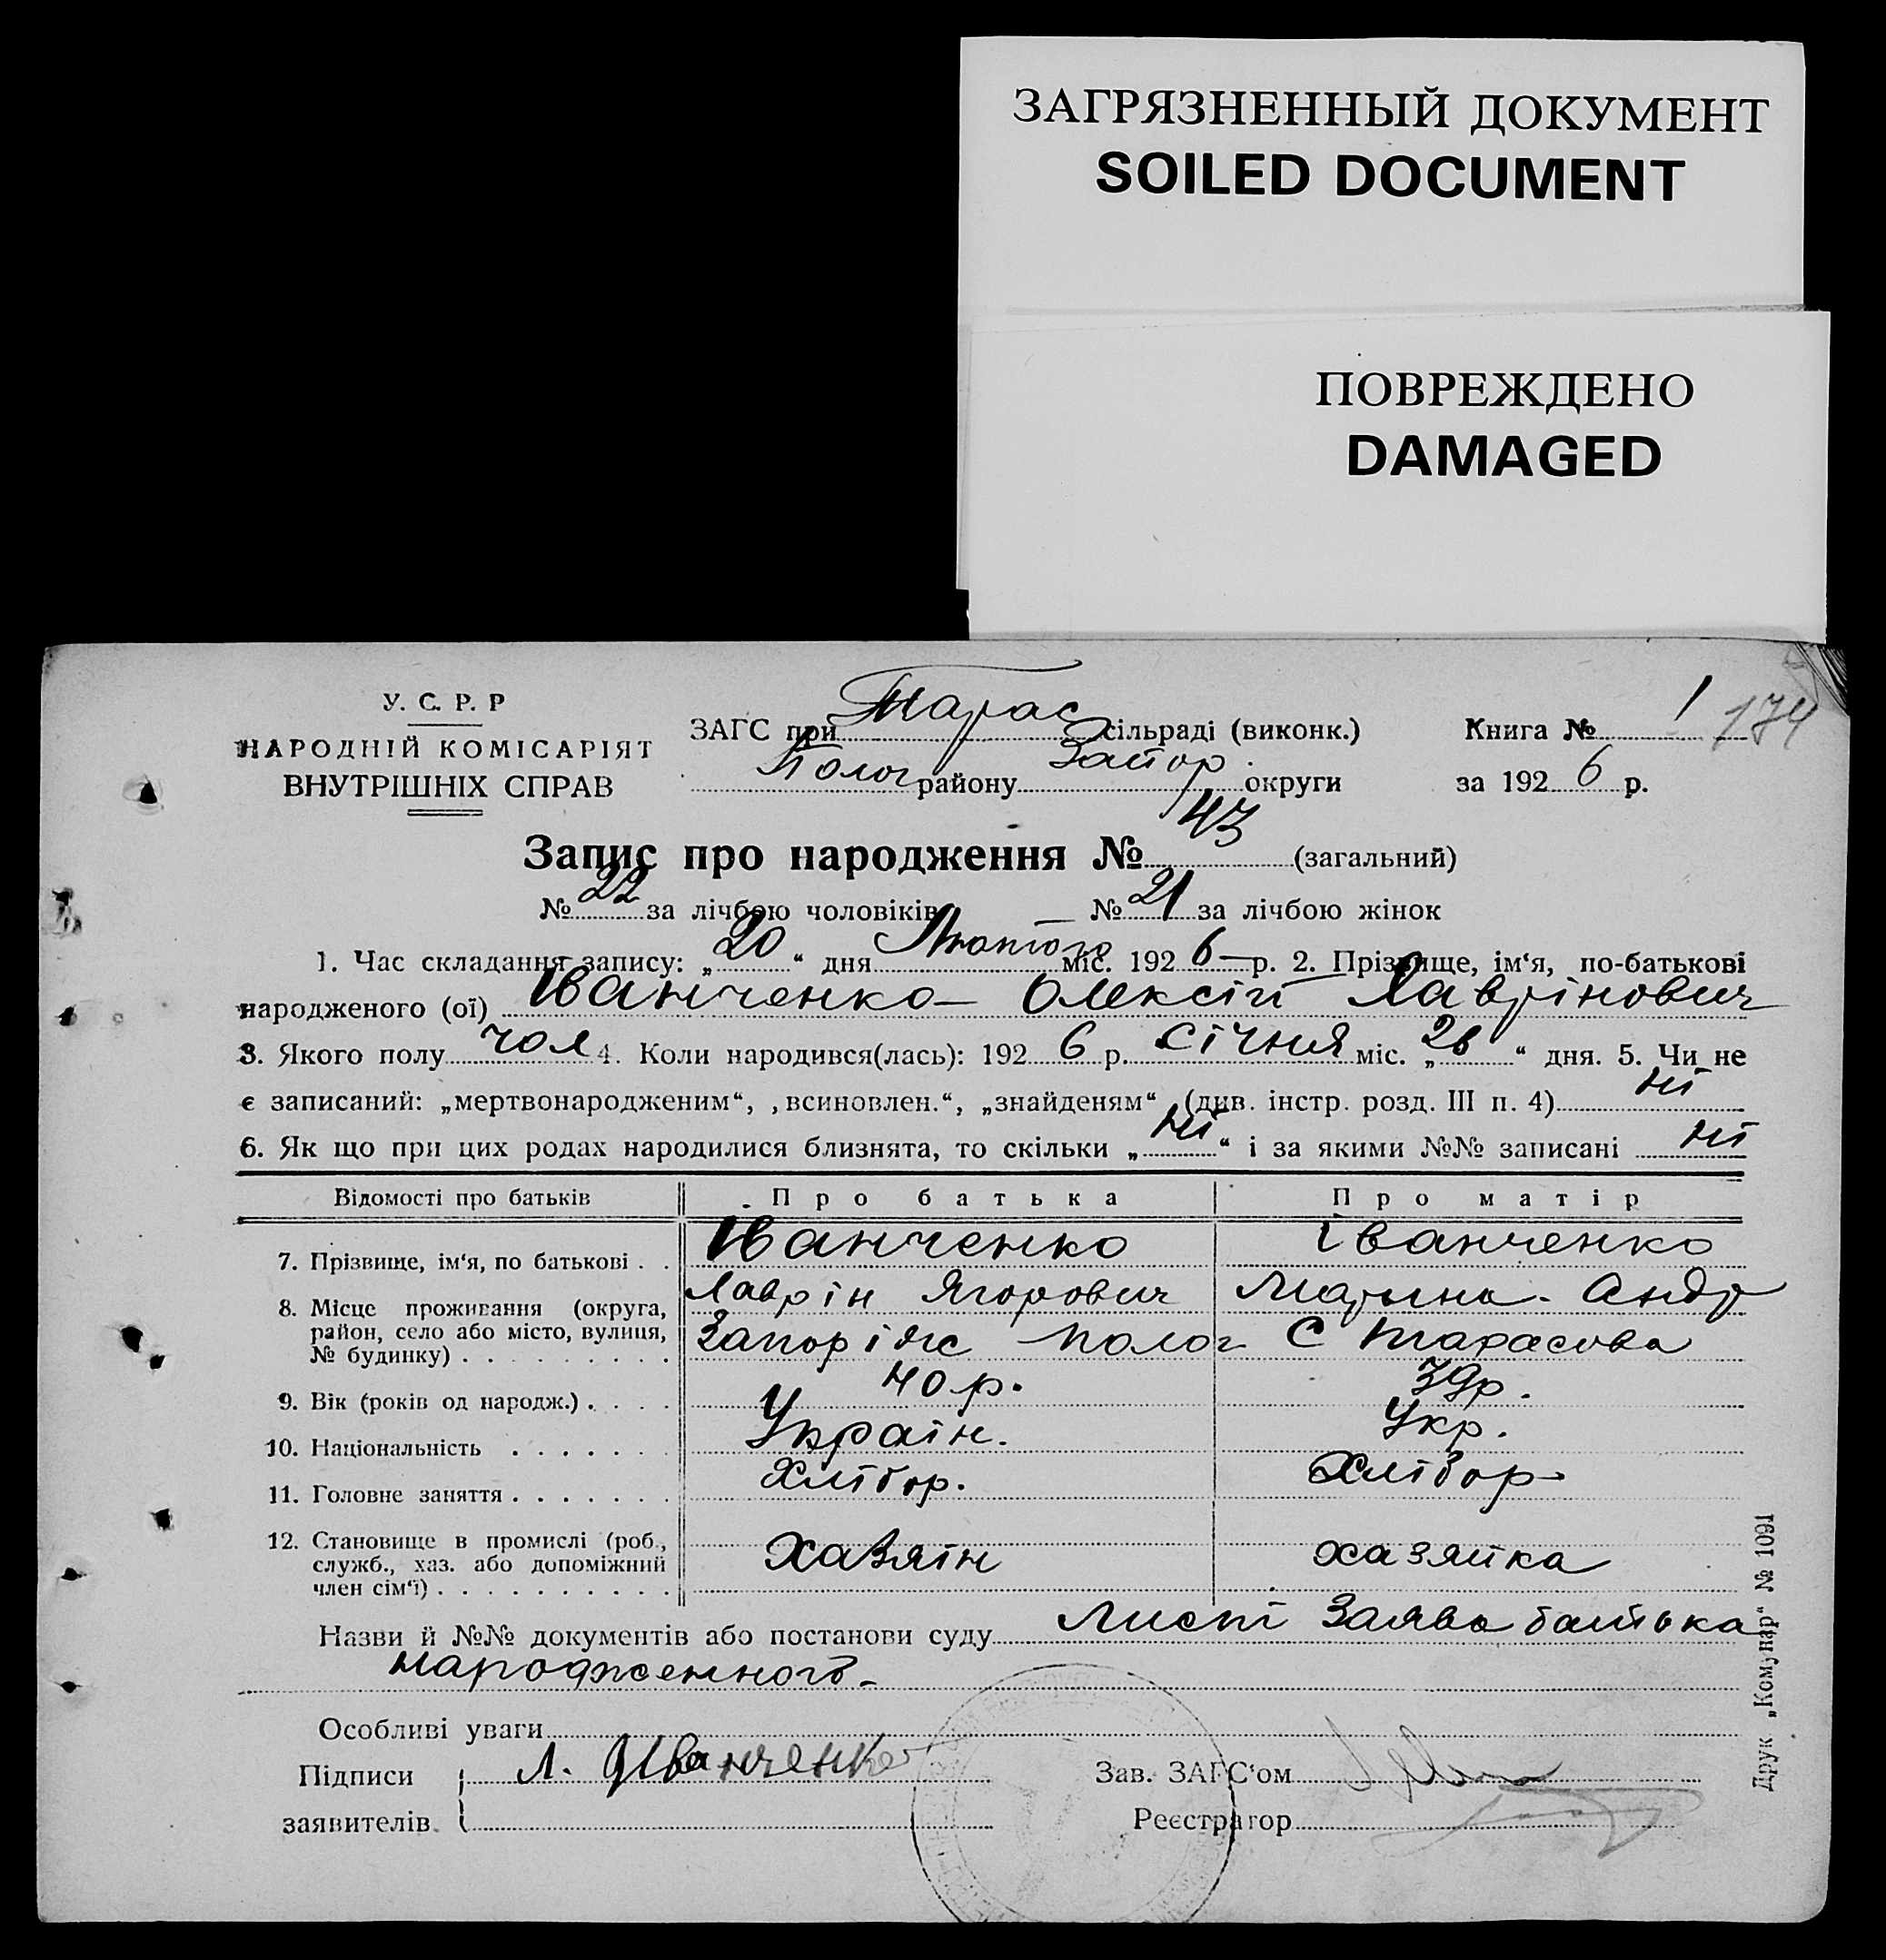 ЗАГРЯЗНЕННЫЙ ДОКУМЕНТ
SOILED DOCUMENT
ПОВРЕЖДЕНО
DAMAGED
У. С. Р. Р
НАРОДНІЙ КОМІСАРІЯТ
ВНУТРІШНІХ СПРАВ
ЗАГС при Тарас сільраді (виконк.)
Полог району Запор. округи
Книга № 1 174
за 192 6 р.
Запис про народження № 43 (загальний)
№ 22 за лічбою чоловіків — № 21 за лічбою жінок
1. Час складання запису: „20“ дня Лютого міс. 192 6 р. 2. Прізвище, ім‘я, по-батькові
народженого (ої) Іванченко Олексій Лаврінович
3. Якого полу чол 4. Коли народився(лась): 192 6 р. січня міс. „26“ дня. 5. Чи не
є записаний: „мертвонародженим“, ‚всиновлен.“, „знайденям“ (див. інстр. розд. III п. 4) ні
6. Як що при цих родах народилися близнята, то скільки „ні“ і за якими №№ записані ні
Відомості про батьків Про батька Про матір
7. Прізвище, ім‘я, по батькові . . Іванченко Іванченко
Лаврін Ягорович Марина Андр
8. Місце проживання (округа,
район, село або місто, вулиця,
№ будинку) . . . . . . . . . Запоріжс Полог С Тарасова
9. Вік (років од народж.) . . . . 40 р. 39р.
10. Національність . . . . . . . Україн. Укр.
11. Головне заняття . . . . . . . Хлібор. Хлібор
12. Становище в промислі (роб.,
служб., хаз. або допоміжний
член сім‘ї) . . . . . . . . . . Хазяїн хазяйка
Назви й №№ документів або постанови суду Листі Заява батька
народженного
Особливі уваги
Підписи Л. Иванченко Зав. ЗАГС‘ом
заявителів Реєстратор
Друк „Комунар“ № 1091